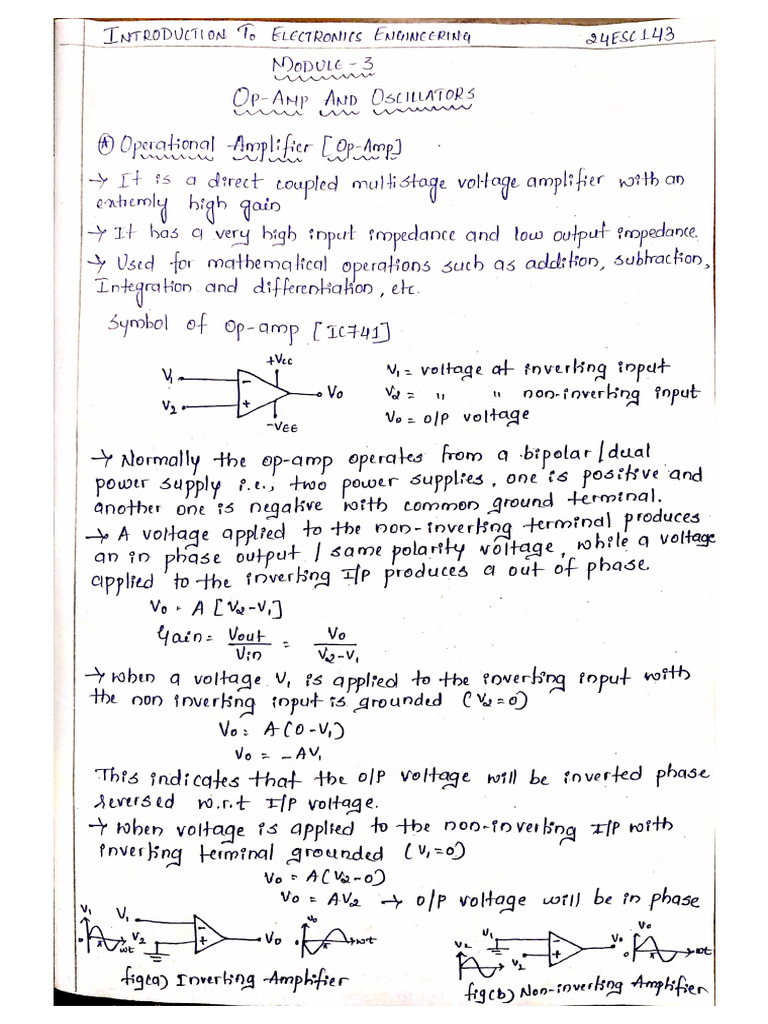 INTRODUCTION TO ELECTRONICS ENGINEERING 24ESC143
MODULE-3
OP-AMP AND OSCILLATORS
(A) Operational Amplifier [Op-Amp]
→ It is a direct coupled multistage voltage amplifier with an
extremly high gain
→ It has a very high input impedance and low output impedance.
→ Used for mathematical operations such as addition, subtraction,
Integration and differentiation, etc.
Symbol of op-amp [IC741]
+Vcc
V₁ - Vo
V₂ +
-VEE
V₁ = voltage at inverting input
V₂ = " " non-inverting input
Vo = o/p voltage
→ Normally the op-amp operates from a bipolar/dual
power supply i.e., two power supplies, one is positive and
another one is negative with common ground terminal.
→ A voltage applied to the non-inverting terminal produces
an in phase output / same polarity voltage, while a voltage
applied to the inverting I/p produces a out of phase
Vo = A [V₂-V₁]
Gain = Vout/Vin = Vo/V₂-V₁
→ when a voltage V₁ is applied to the inverting input with
the non inverting input is grounded (V₂=0)
Vo = A(0-V₁)
Vo = -AV₁
This indicates that the o/p voltage will be inverted phase
reversed w.r.t I/P voltage.
→ when voltage is applied to the non-inverting I/P with
inverting terminal grounded (V₁=0)
Vo = A(V₂-0)
Vo = AV₂ → o/p voltage will be in phase
V₁ 0 π ωt V₁ V₂ - + Vo Vo 0 π ωt
fig(a) Inverting Amplifier
V₂ V₁ V₂ - + Vo Vo 0 π ωt
fig(b) Non-inverting Amplifier